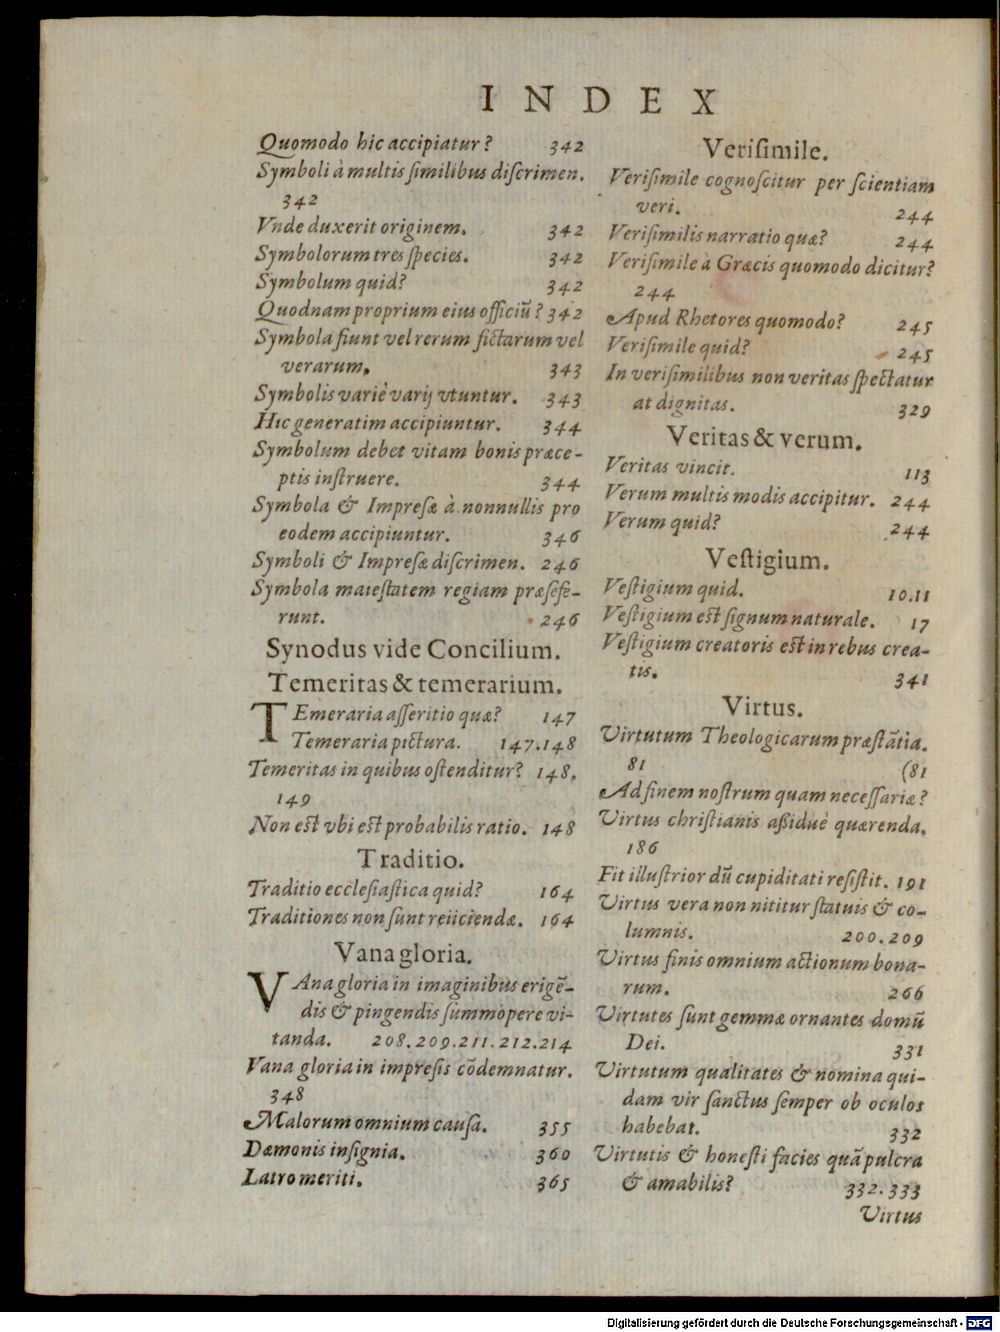 INDEX
Quomodo hic accipiatur? 342
Symboli à multis ſimilibus diſcrimen.
342
Vnde duxerit originem. 342
Symbolorum tres ſpecies. 342
Symbolum quid? 342
Quodnam proprium eius officiũ? 342
Symbola fiunt vel rerum fictarum vel
verarum. 343
Symbolis variè varij vtuntur. 343
Hic generatim accipiuntur. 344
Symbolum debet vitam bonis præce-
ptis inſtruere. 344
Symbola & Impreſæ à nonnullis pro
eodem accipiuntur. 346
Symboli & Impreſæ diſcrimen. 246
Symbola maieſtatem regiam præſefe-
runt. 246
Synodus vide Concilium.
Temeritas & temerarium.
TEmeraria aſſeritio quæ? 147
Temeraria pictura. 147.148
Temeritas in quibus oſtenditur? 148.
149
Non eſt vbi eſt probabilis ratio. 148
Traditio.
Traditio eccleſiaſtica quid? 164
Traditiones non ſunt reiiciendæ. 164
Vana gloria.
VAna gloria in imaginibus erigẽ-
dis & pingendis ſummopere vi-
tanda. 208.209.211.212.214
Vana gloria in impreſis cõdemnatur.
348
Malorum omnium cauſa. 355
Dæmonis inſignia. 360
Latro meriti. 365
Veriſimile.
Veriſimile cognoſcitur per ſcientiam
veri. 244
Veriſimilis narratio quæ? 244
Veriſimile à Græcis quomodo dicitur?
244
Apud Rhetores quomodo? 245
Veriſimile quid? 245
In veriſimilibus non veritas ſpectatur
at dignitas. 329
Veritas & verum.
Veritas vincit. 113
Verum multis modis accipitur. 244
Verum quid? 244
Veſtigium.
Veſtigium quid. 10.11
Veſtigium eſt ſignum naturale. 17
Veſtigium creatoris eſt in rebus crea-
tis. 341
Virtus.
Virtutum Theologicarum præſtãtia.
81 (81
Ad finem noſtrum quam neceſſariæ?
Virtus chriſtianis aßiduè quærenda.
186
Fit illuſtrior dũ cupiditati reſiſtit. 191
Virtus vera non nititur ſtatuis & co-
lumnis. 200.209
Virtus finis omnium actionum bona-
rum. 266
Virtutes ſunt gemmæ ornantes domũ
Dei. 331
Virtutum qualitates & nomina qui-
dam vir ſanctus ſemper ob oculos
habebat. 332
Virtutis & honeſti facies quã pulcra
& amabilis? 332.333
Virtus
Digitalisierung gefördert durch die Deutsche Forschungsgemeinschaft - DFG